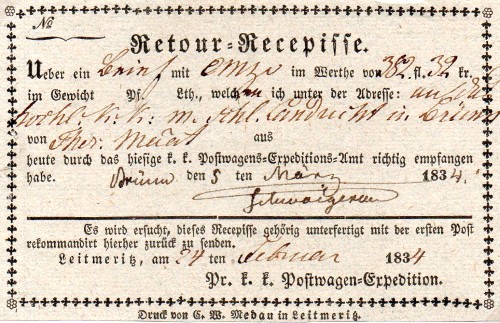 No
Retour=Recepisse.
Ueber ein Brief mit im Werthe von 382 fl. 32 kr.
im Gewicht Pf. Lth., welchen ich unter der Adresse: an das
k. k. m. schl. Landrecht in Brünn
von Ther. aus
heute durch das hiesige k. k. Postwagens=Expeditions=Amt richtig empfangen
habe. Brünn den 5 ten März 1834.
Es wird ersucht, dieses Recepisse gehörig unterfertigt mit der ersten Post
rekommandirt hierher zurück zu senden.
Leitmeritz, am 24 ten Februar 1834
Pr. k. k. Postwagen=Expedition.
Druck von C. W. Medau in Leitmeritz.